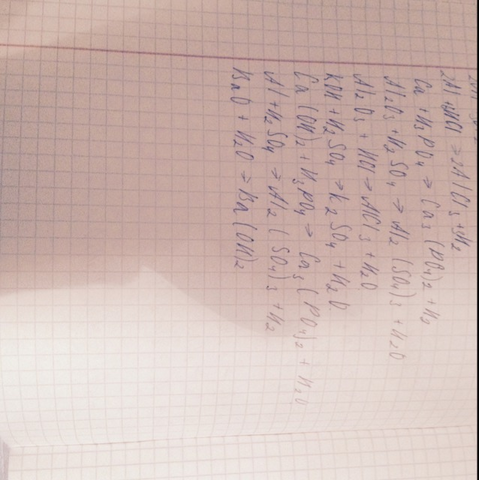 2Al + HCl → 2AlCl₃ + H₂
Ca + H₃PO₄ → Ca₃(PO₄)₂ + H₂
Al₂O₃ + H₂SO₄ → Al₂(SO₄)₃ + H₂O
Al₂O₃ + HCl → AlCl₃ + H₂O
KOH + H₂SO₄ → K₂SO₄ + H₂O
Ca(OH)₂ + H₃PO₄ → Ca₃(PO₄)₂ + H₂O
Al + H₂SO₄ → Al₂(SO₄)₃ + H₂
BaO + H₂O → Ba(OH)₂